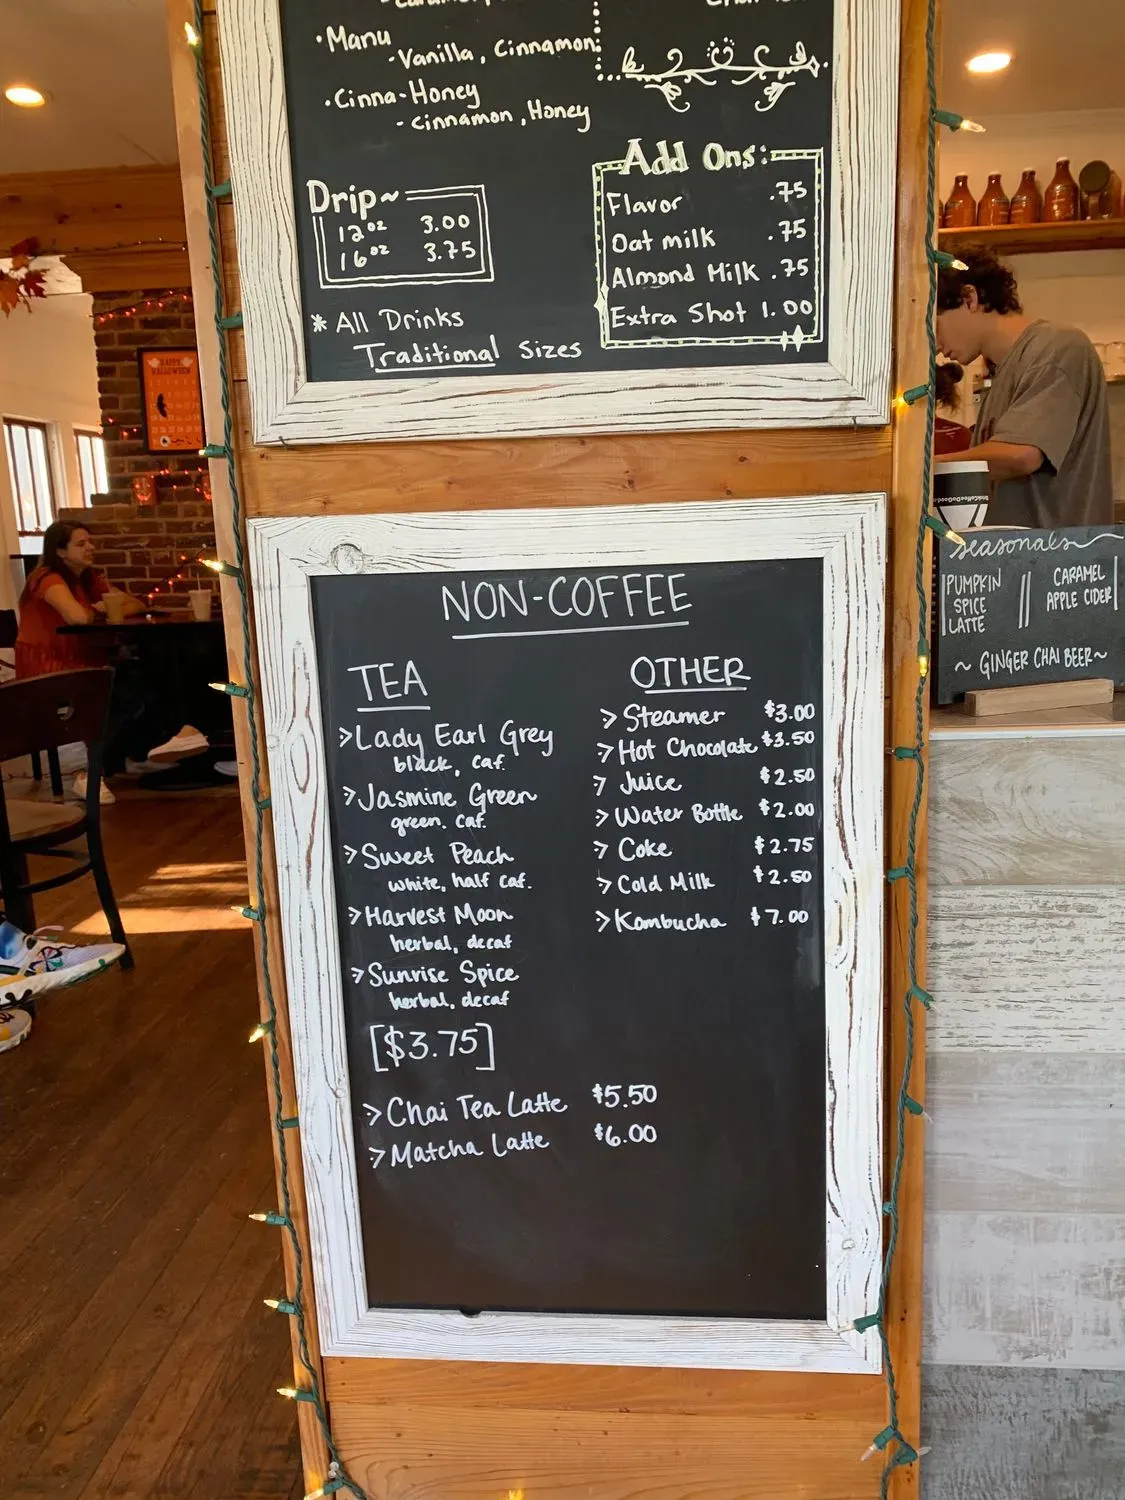 ·Manu
-Vanilla, Cinnamon
·Cinna-Honey
- Cinnamon, Honey
Drip~
12oz 3.00
16oz 3.75
* All Drinks
Traditional Sizes
Add Ons:
Flavor .75
Oat milk .75
Almond Milk .75
Extra Shot 1.00
NON-COFFEE
TEA
>Lady Earl Grey
black, caf.
>Jasmine Green
green, caf.
>Sweet Peach
white, half caf.
>Harvest Moon
herbal, decaf
>Sunrise Spice
herbal, decaf
[$3.75]
>Chai Tea Latte $5.50
>Matcha Latte $6.00
OTHER
>Steamer $3.00
>Hot Chocolate $3.50
>Juice $2.50
>Water Bottle $2.00
>Coke $2.75
>Cold Milk $2.50
>Kombucha $7.00
seasonals
PUMPKIN
SPICE
LATTE
CARAMEL
APPLE CIDER
~ GINGER CHAI BEER~
HAPPY
HALLOWEEN